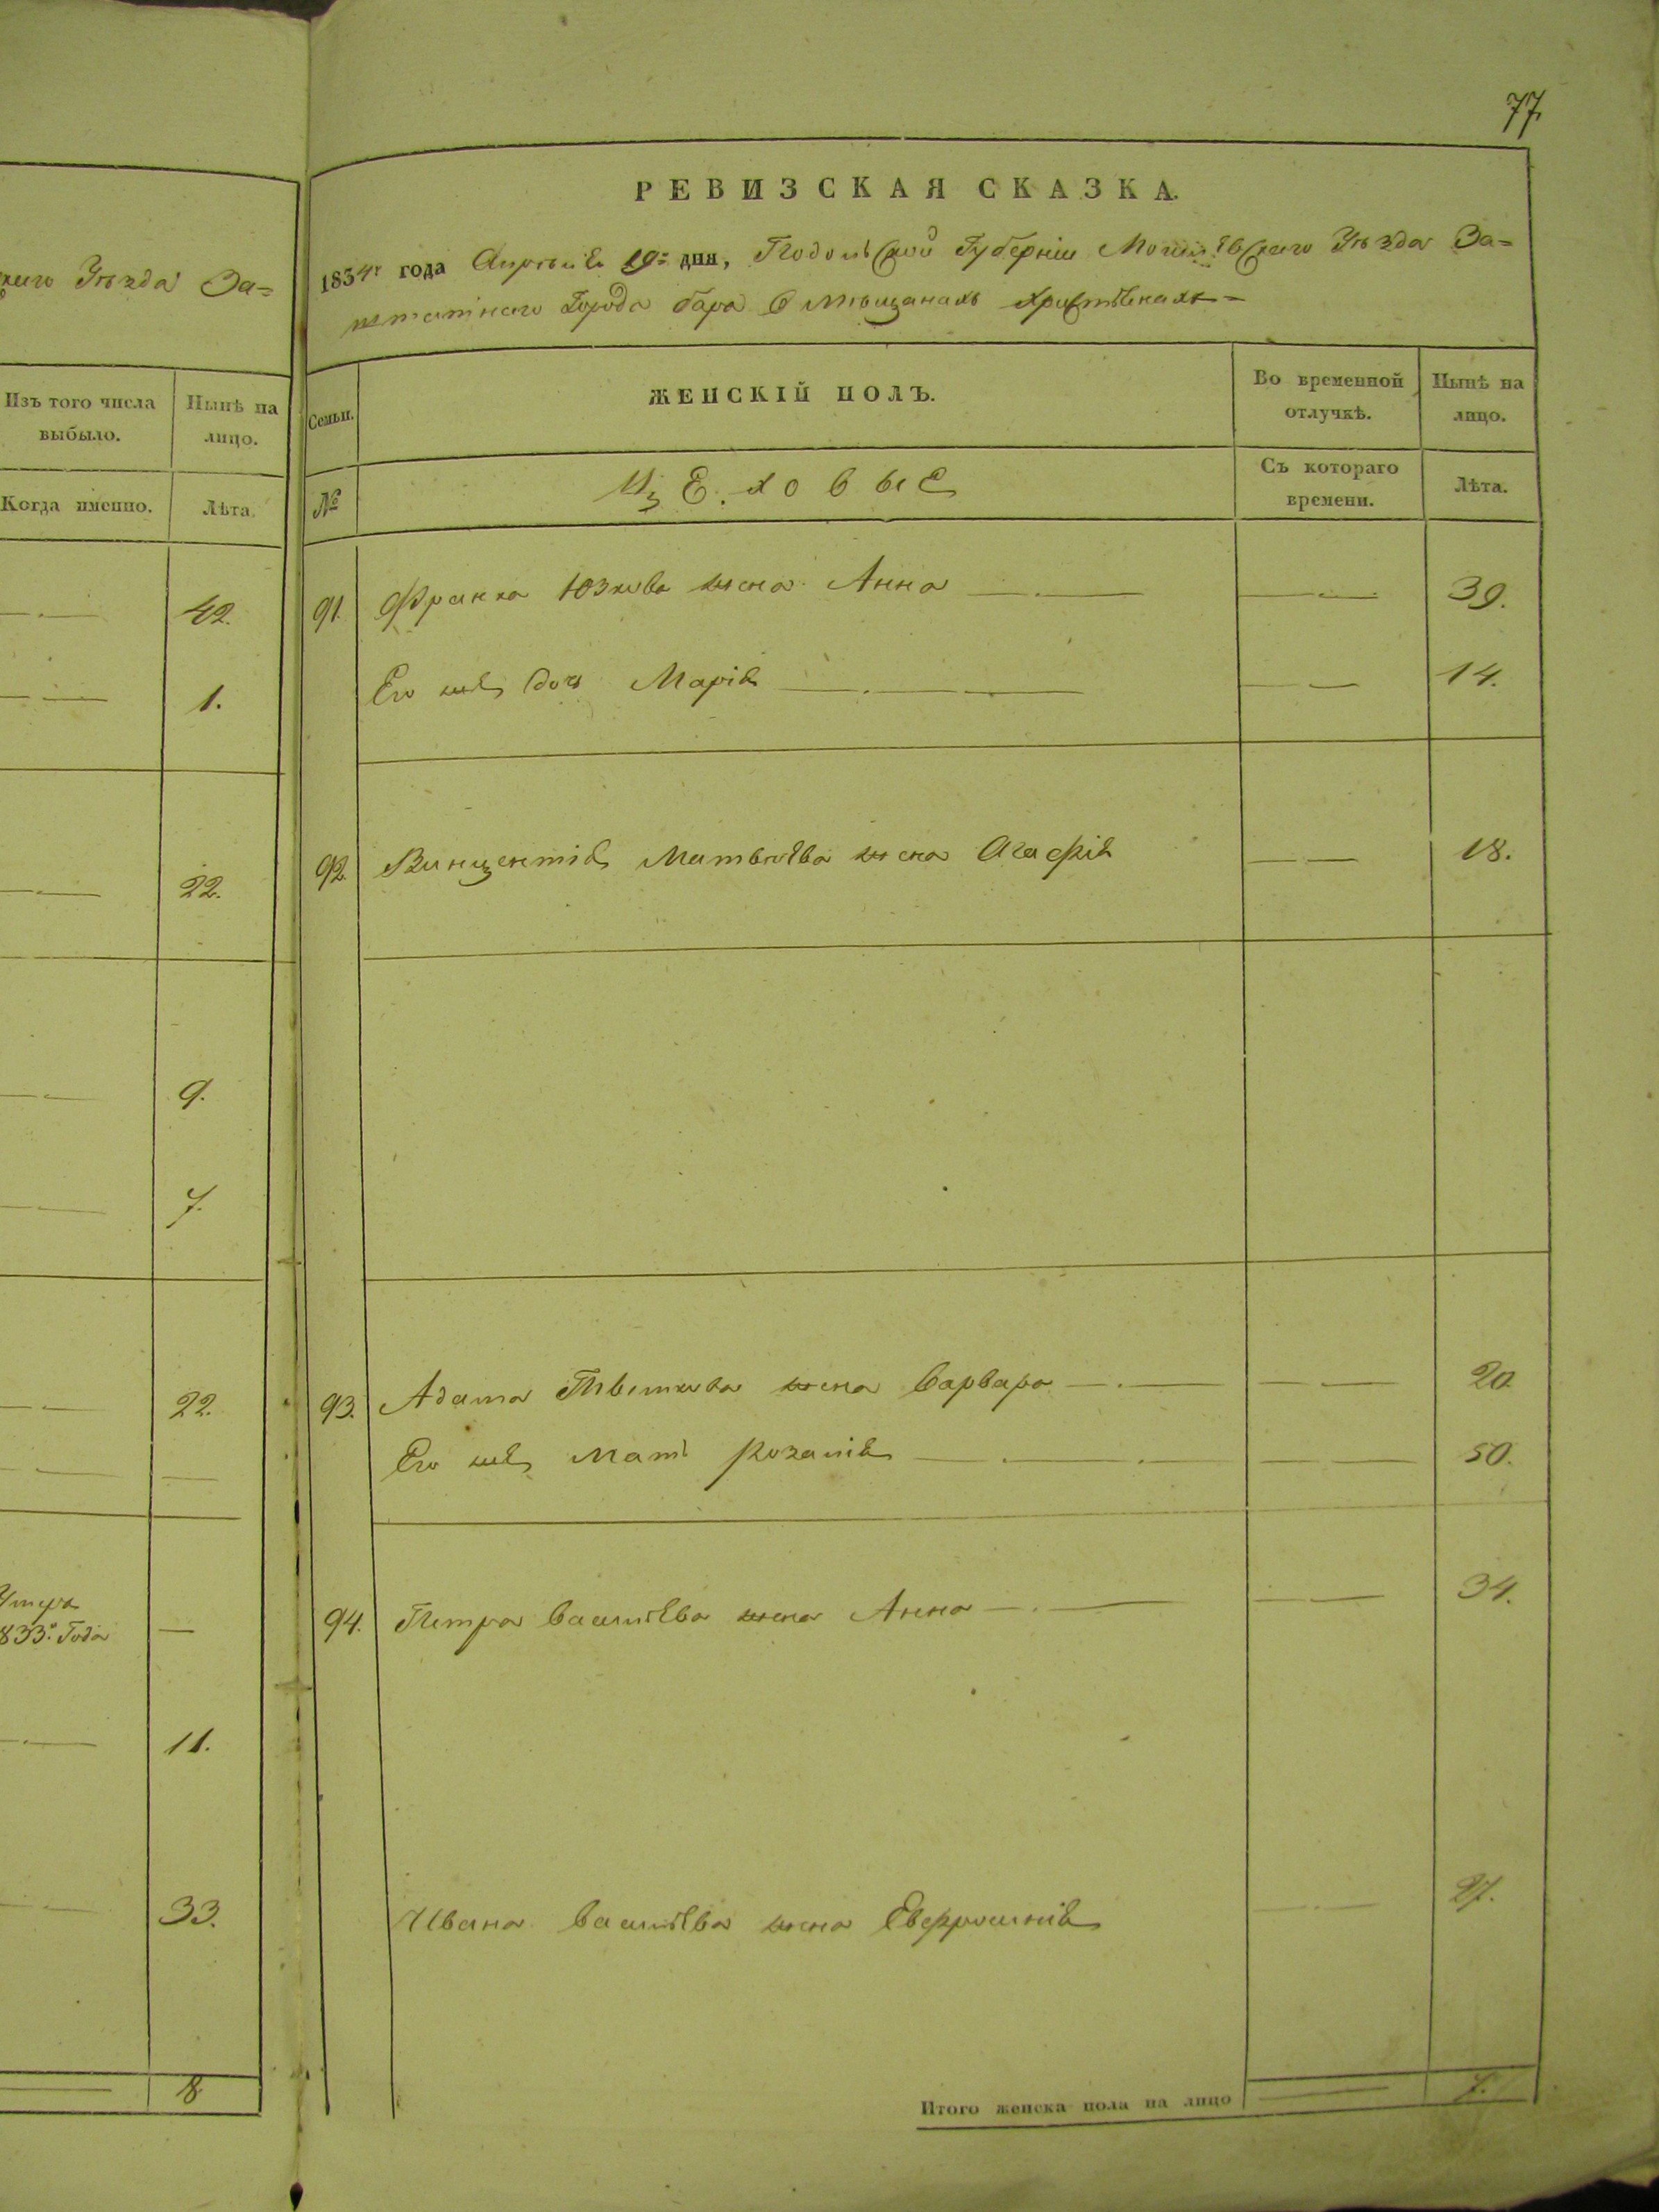 77.
РЕВИЗСКАЯ СКАЗКА.
1834г года Апрѣля 19= дня, Подольской Губерніи Могилевскаго Уѣзда За=
штатнаго Города бара О мѣщанахъ христіянахъ=
Семьи.
ЖЕНСКІЙ ПОЛЪ.
Во временной отлучкѣ.
Нынѣ на лицо.
№
ЦЕховыЕ
Съ котораго времени.
Лѣта.
91. Франка Юзкова жена Анна 39.
Его жѣ дочь Марія 14.
92. Винцентія Матвѣева жена Агафія 18.
93. Адама жена Варвара 20.
Его жѣ мать Розалія 50.
94. Петра Василіева жена Анна 34.
Ивана Василіева жена Евфросинія 27.
Итого женска пола на лицо 7.
каго Уѣзда За=
Изъ того числа выбыло.
Нынѣ на лицо.
Когда именно.
Лѣта.
42.
1.
22.
9.
7.
22.
Умеръ
833го Года
11.
33.
8